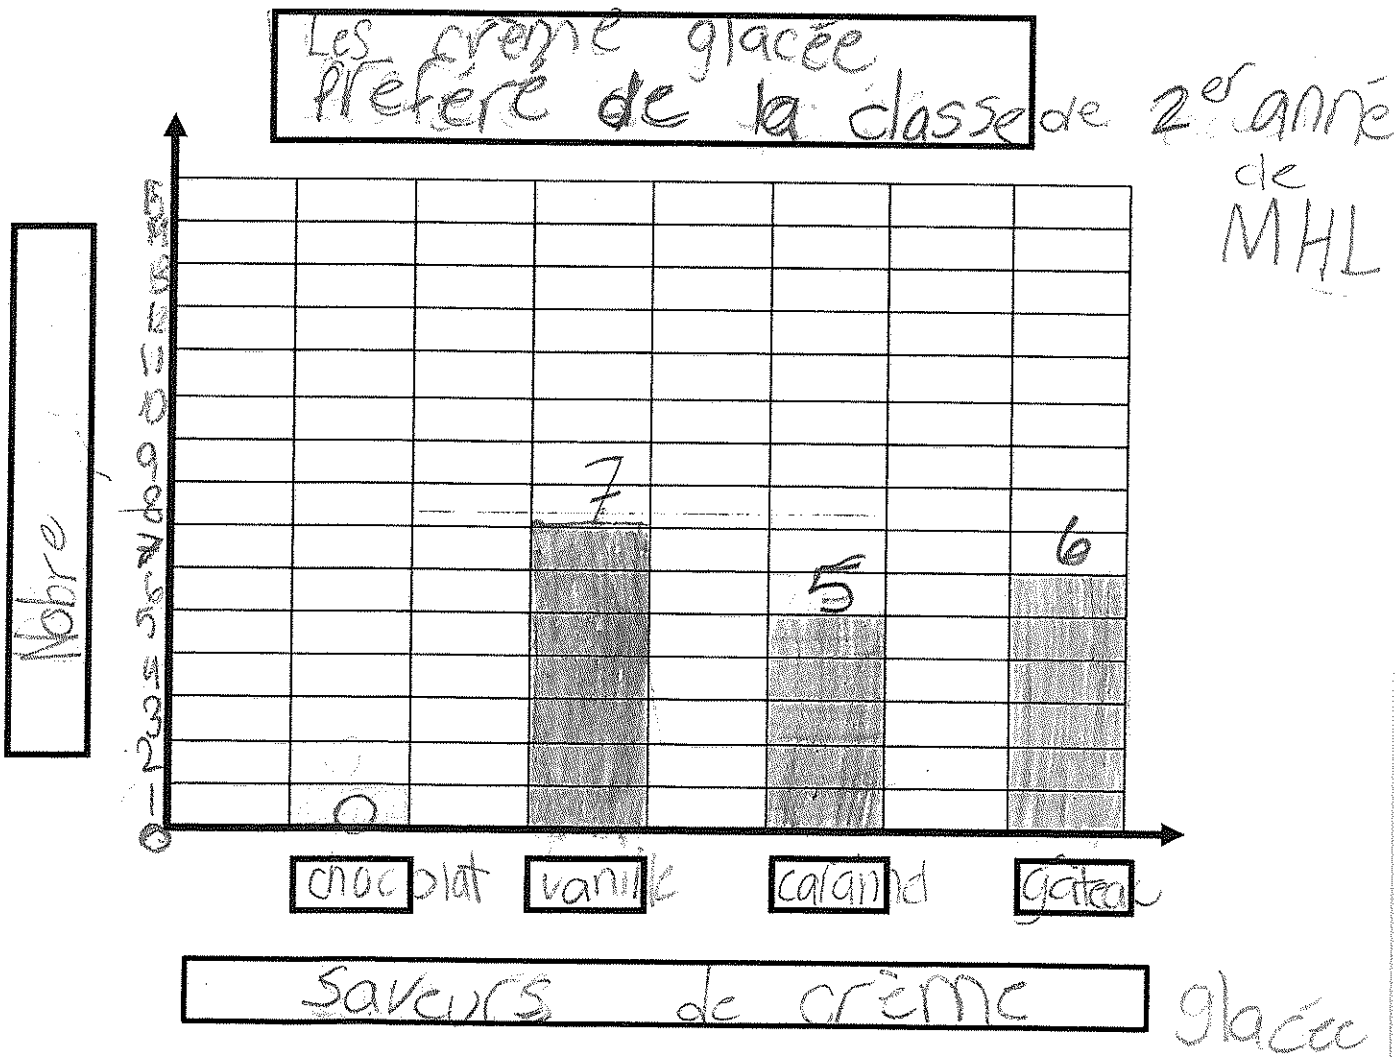 Les crème glacée
Préféré de la classe de 2er anné
de
MHL
Nobre
15
14
13
12
11
10
9
8
7
6
5
4
3
2
1
0
0
7
5
6
chocolat vanille caramel gâteau
Saveurs de crème glacée